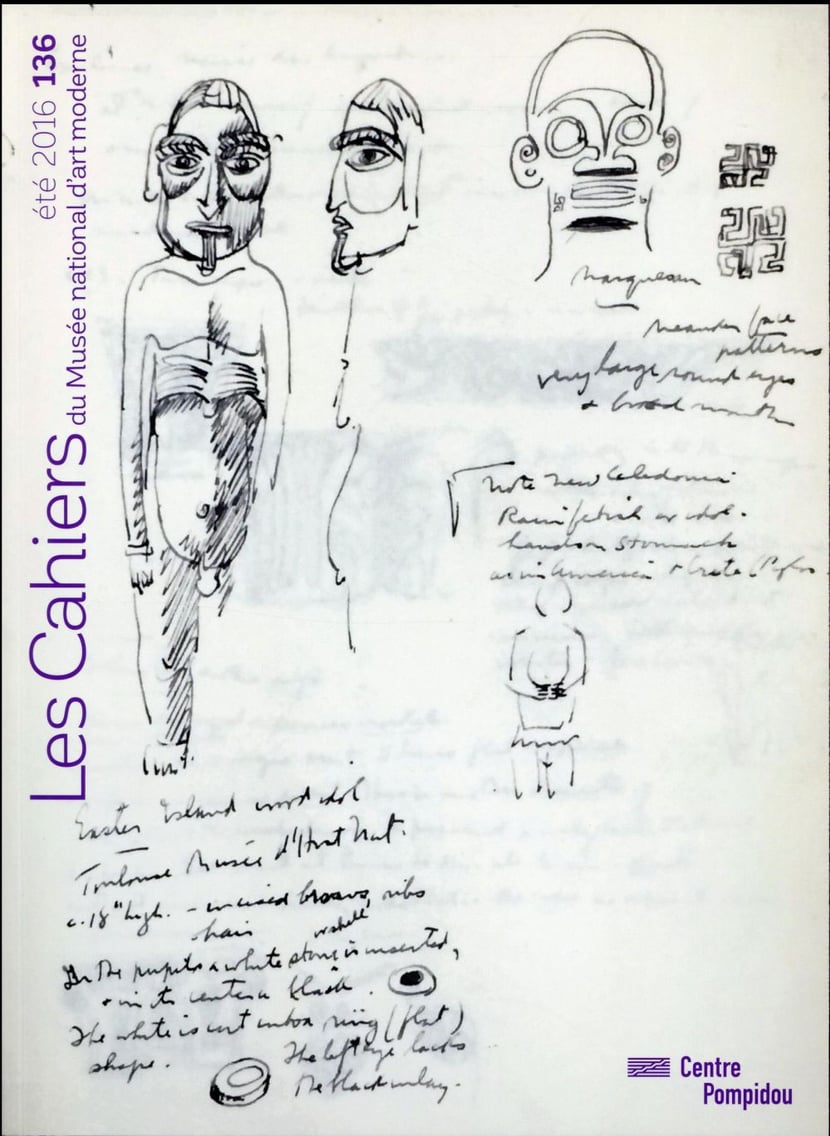 été 2016 136
Les Cahiers du Musée national d'art moderne
Marquesan
meander face
patterns
very large round eyes
+ broad mouth
Note New Caledonia
Rain fetish or idol.
hands on stomach
as in America + Crete
Easter Island wood idol
Toulouse Musée d'Hist Nat.
c. 18" high. – incised brows, ribs
hair
or shell
In the pupils a white stone is inserted,
+ in its center a black.
The white is cut into a ring (flat)
shape.
The left eye lacks
the black inlay.
Centre
Pompidou